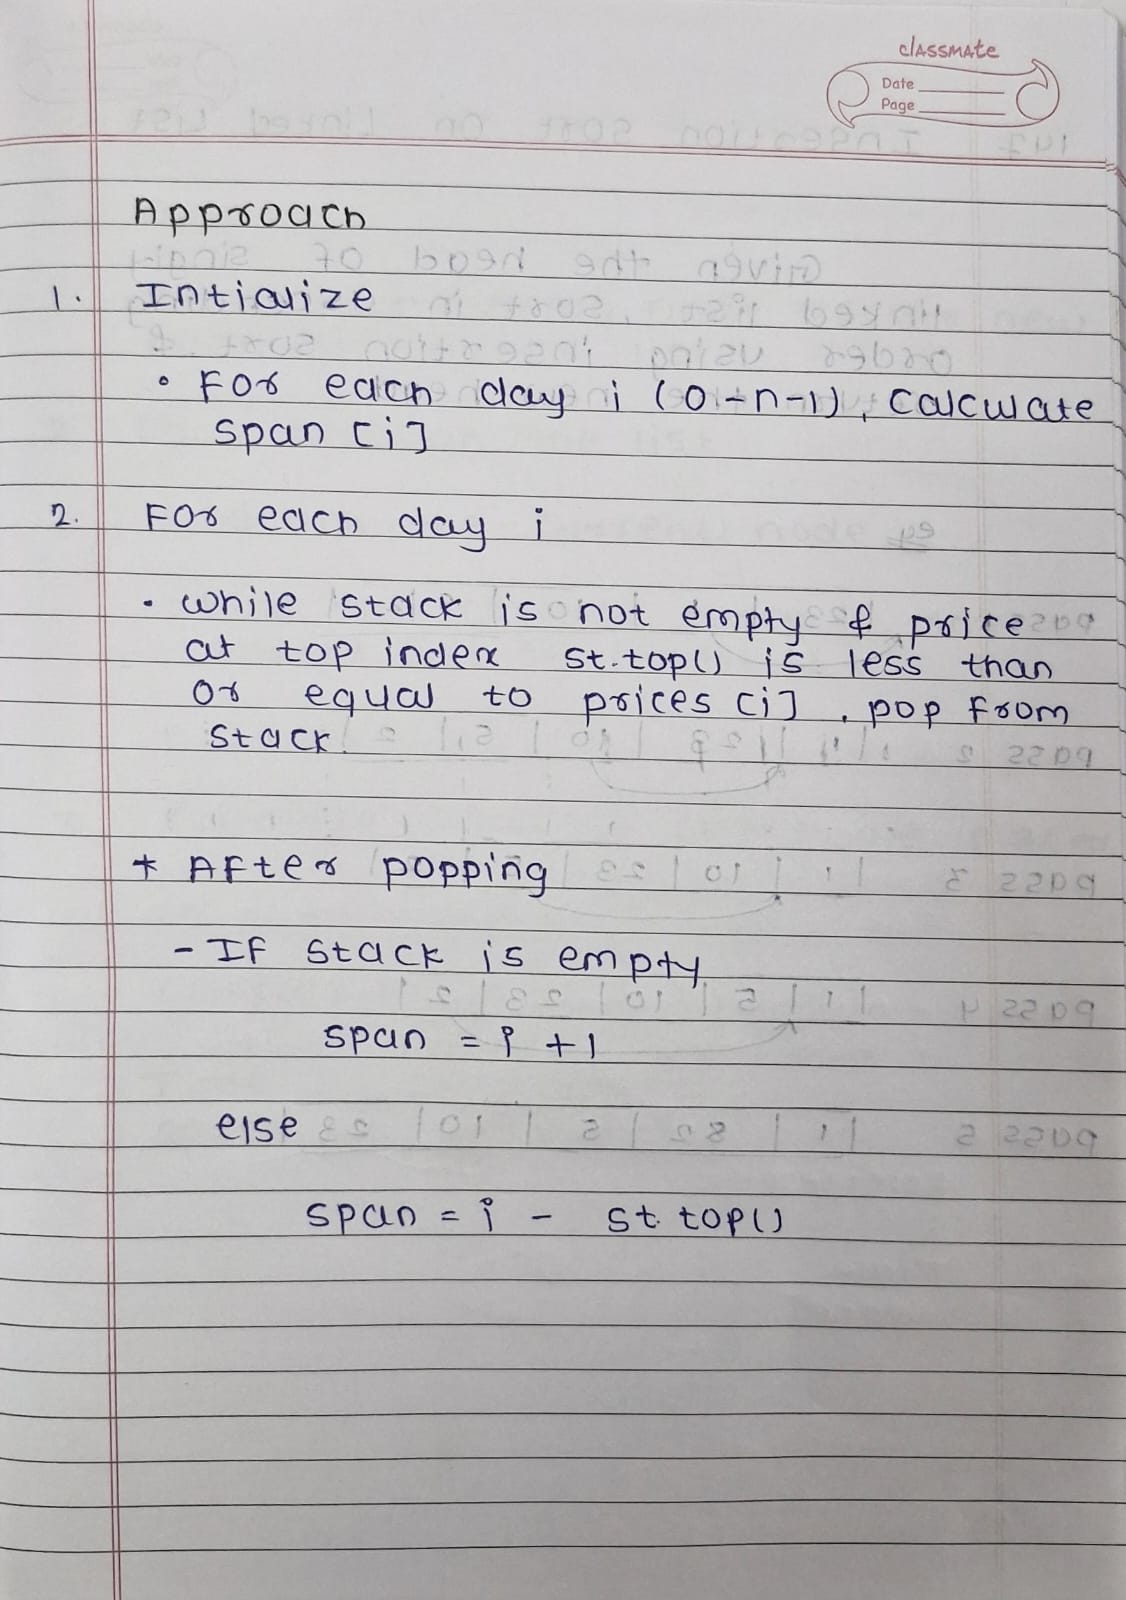 classmate
Date
Page
Approach
1. Intialize
• For each day i (0-n-1), calculate
span [i]
2. For each day i
• while stack is not empty & price
at top index st.top() is less than
or equal to prices [i], pop from
stack.
* After popping
- If stack is empty
span = i + 1
else
span = i - st.top()